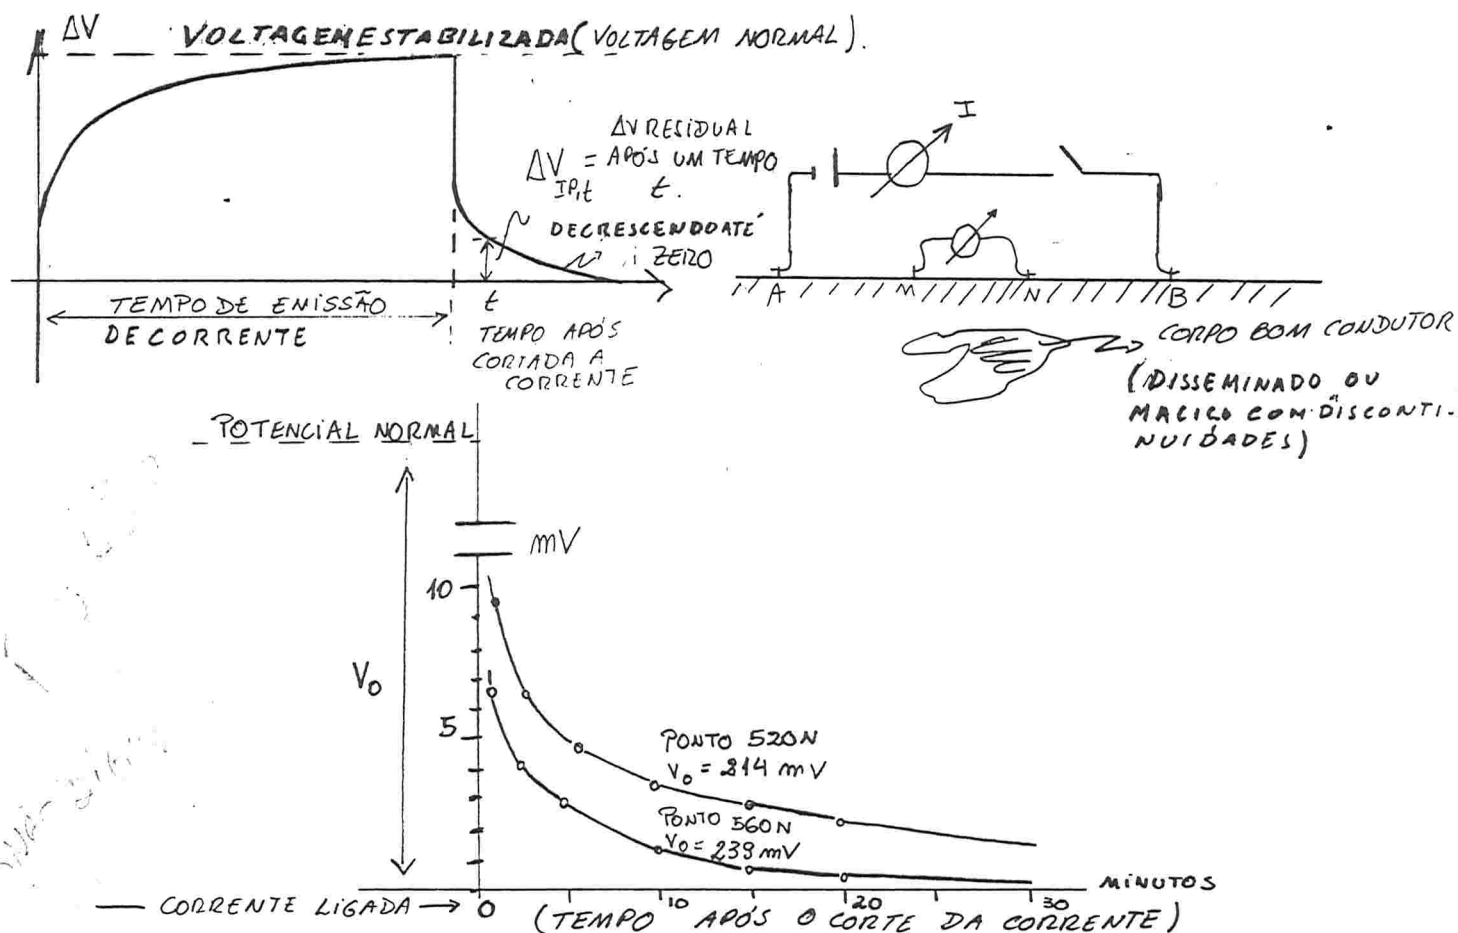 ΔV
VOLTAGEM ESTABILIZADA (VOLTAGEM NORMAL).
ΔV RESIDUAL
ΔV IP,t = APÓS UM TEMPO
t.
DECRESCENDO ATÉ
ZERO
TEMPO DE EMISSÃO
DE CORRENTE
t
TEMPO APÓS
CORTADA A
CORRENTE
I
A M N B
CORPO BOM CONDUTOR
(DISSEMINADO OU
MACIÇO COM DISCONTI-
NUIDADES)
POTENCIAL NORMAL
mV
10
V₀
5
PONTO 520N
V₀ = 214 mV
PONTO 560N
V₀ = 239 mV
MINUTOS
CORRENTE LIGADA → 0 10 20 30
(TEMPO APÓS O CORTE DA CORRENTE)